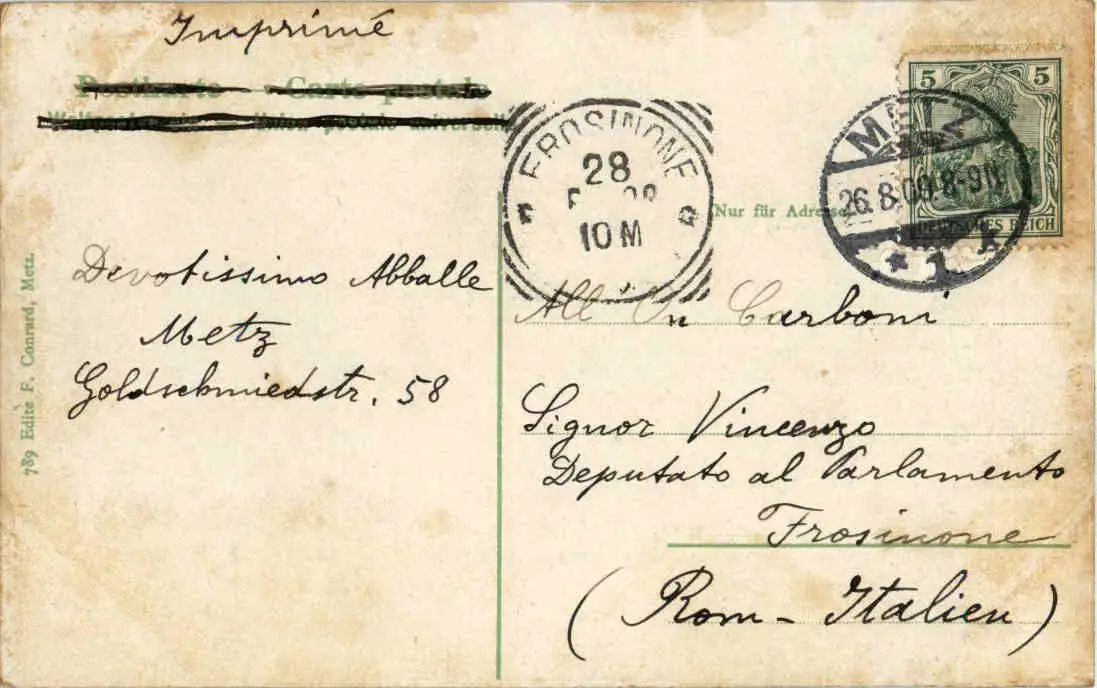 Imprimé
Postkarte - Carte postale
Weltpostverein - Union postale universelle
5 5
DEUTSCHES REICH
METZ
26.8.09.8-9N
* 1 k
FROSINONE
28
10 M
Nur für Adresse
Devotissimo Abballe
Metz
Goldschmiedstr. 58
All' On Carboni
Signor Vincenzo
Deputato al Parlamento
Frosinone
(Rom - Italien)
789 Edité F. Conrard, Metz.